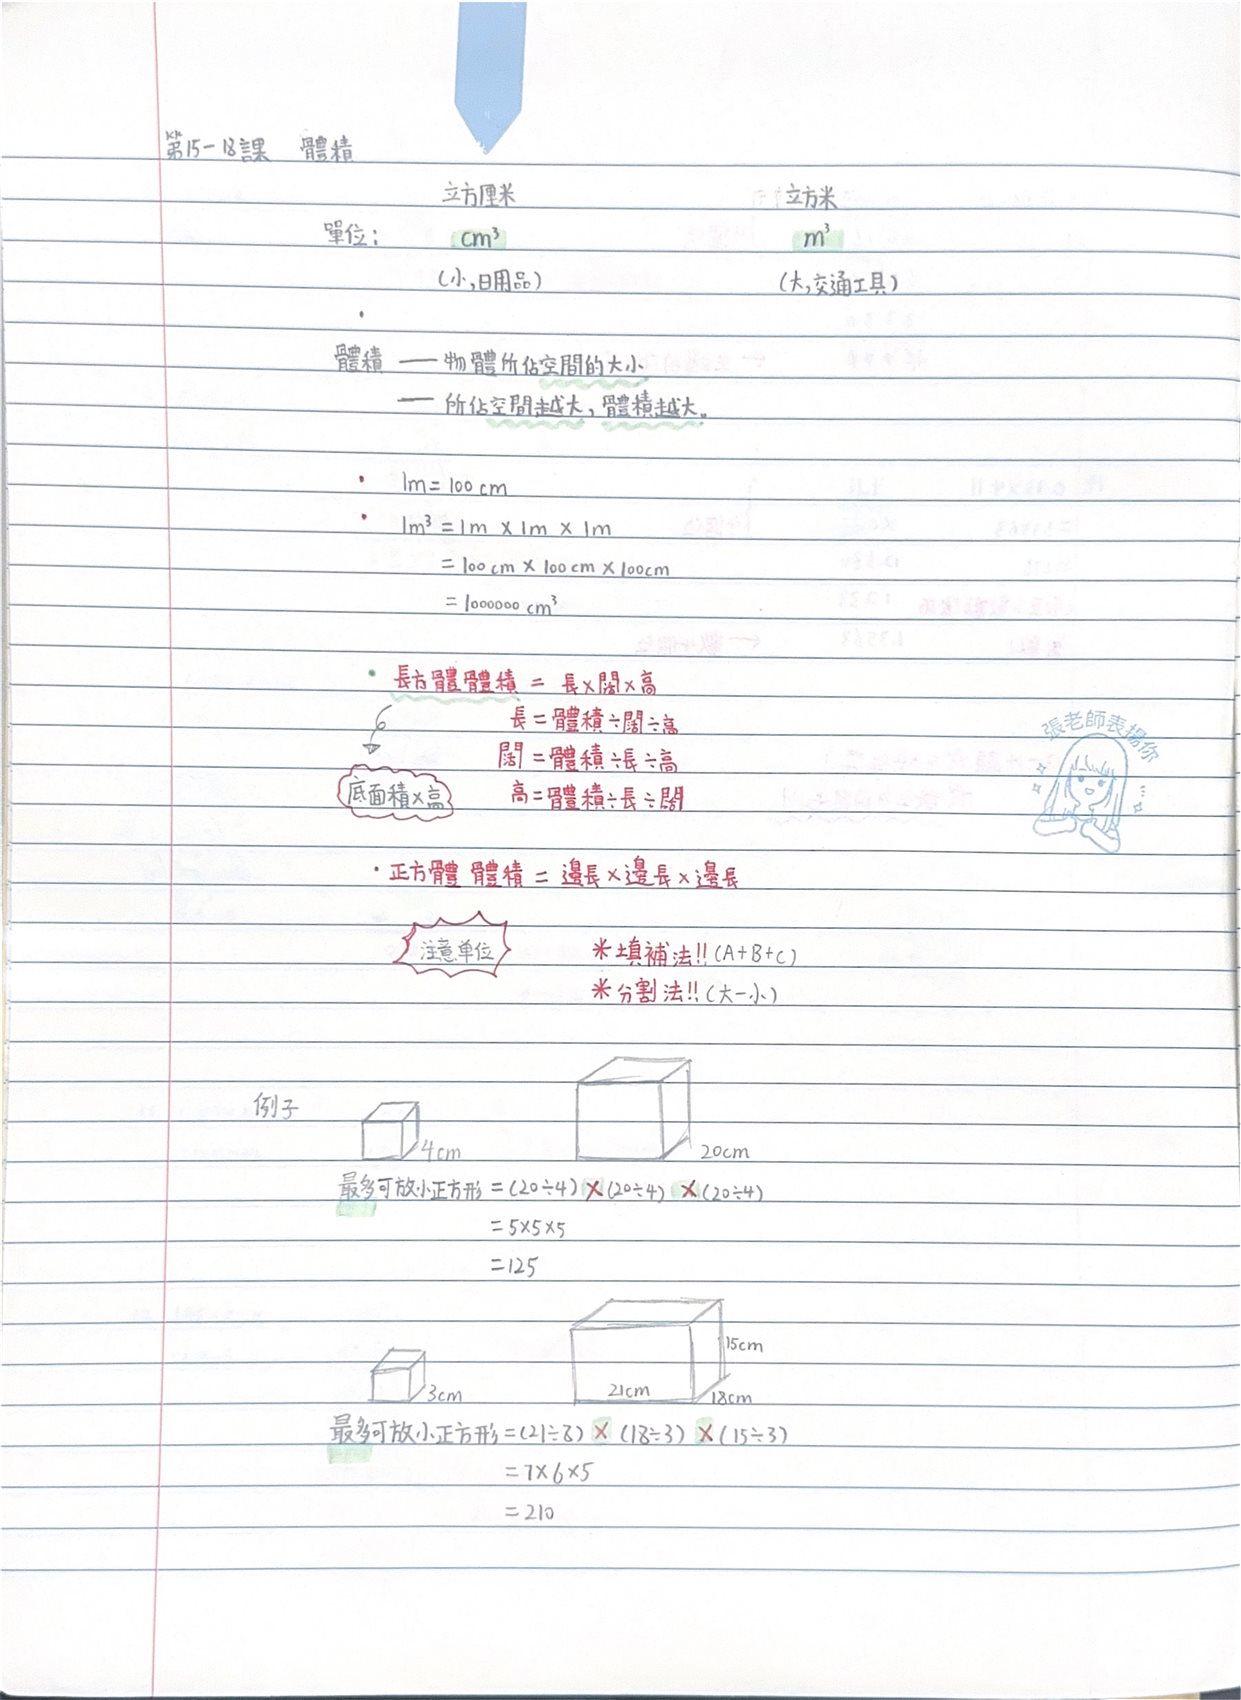 第15-18課 體積
立方厘米 立方米
單位: cm³ m³
(小,日用品) (大,交通工具)
體積 — 物體所佔空間的大小
— 所佔空間越大,體積越大。
• 1m = 100 cm
• 1m³ = 1m × 1m × 1m
= 100 cm × 100 cm × 100cm
= 1000000 cm³
• 長方體體積 = 長×闊×高
長 = 體積÷闊÷高
闊 = 體積÷長÷高
底面積×高 高 = 體積÷長÷闊
張老師表揚你
• 正方體 體積 = 邊長×邊長×邊長
注意单位 *填補法!! (A+B+C)
*分割法!! (大-小)
例子
4cm 20cm
最多可放小正方形 = (20÷4) × (20÷4) × (20÷4)
= 5×5×5
= 125
15cm
3cm 21cm 18cm
最多可放小正方形 = (21÷3) × (18÷3) × (15÷3)
= 7×6×5
= 210